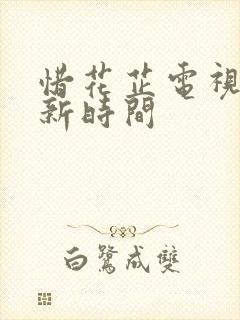 惜花芷電視
新時間
白鷺成雙